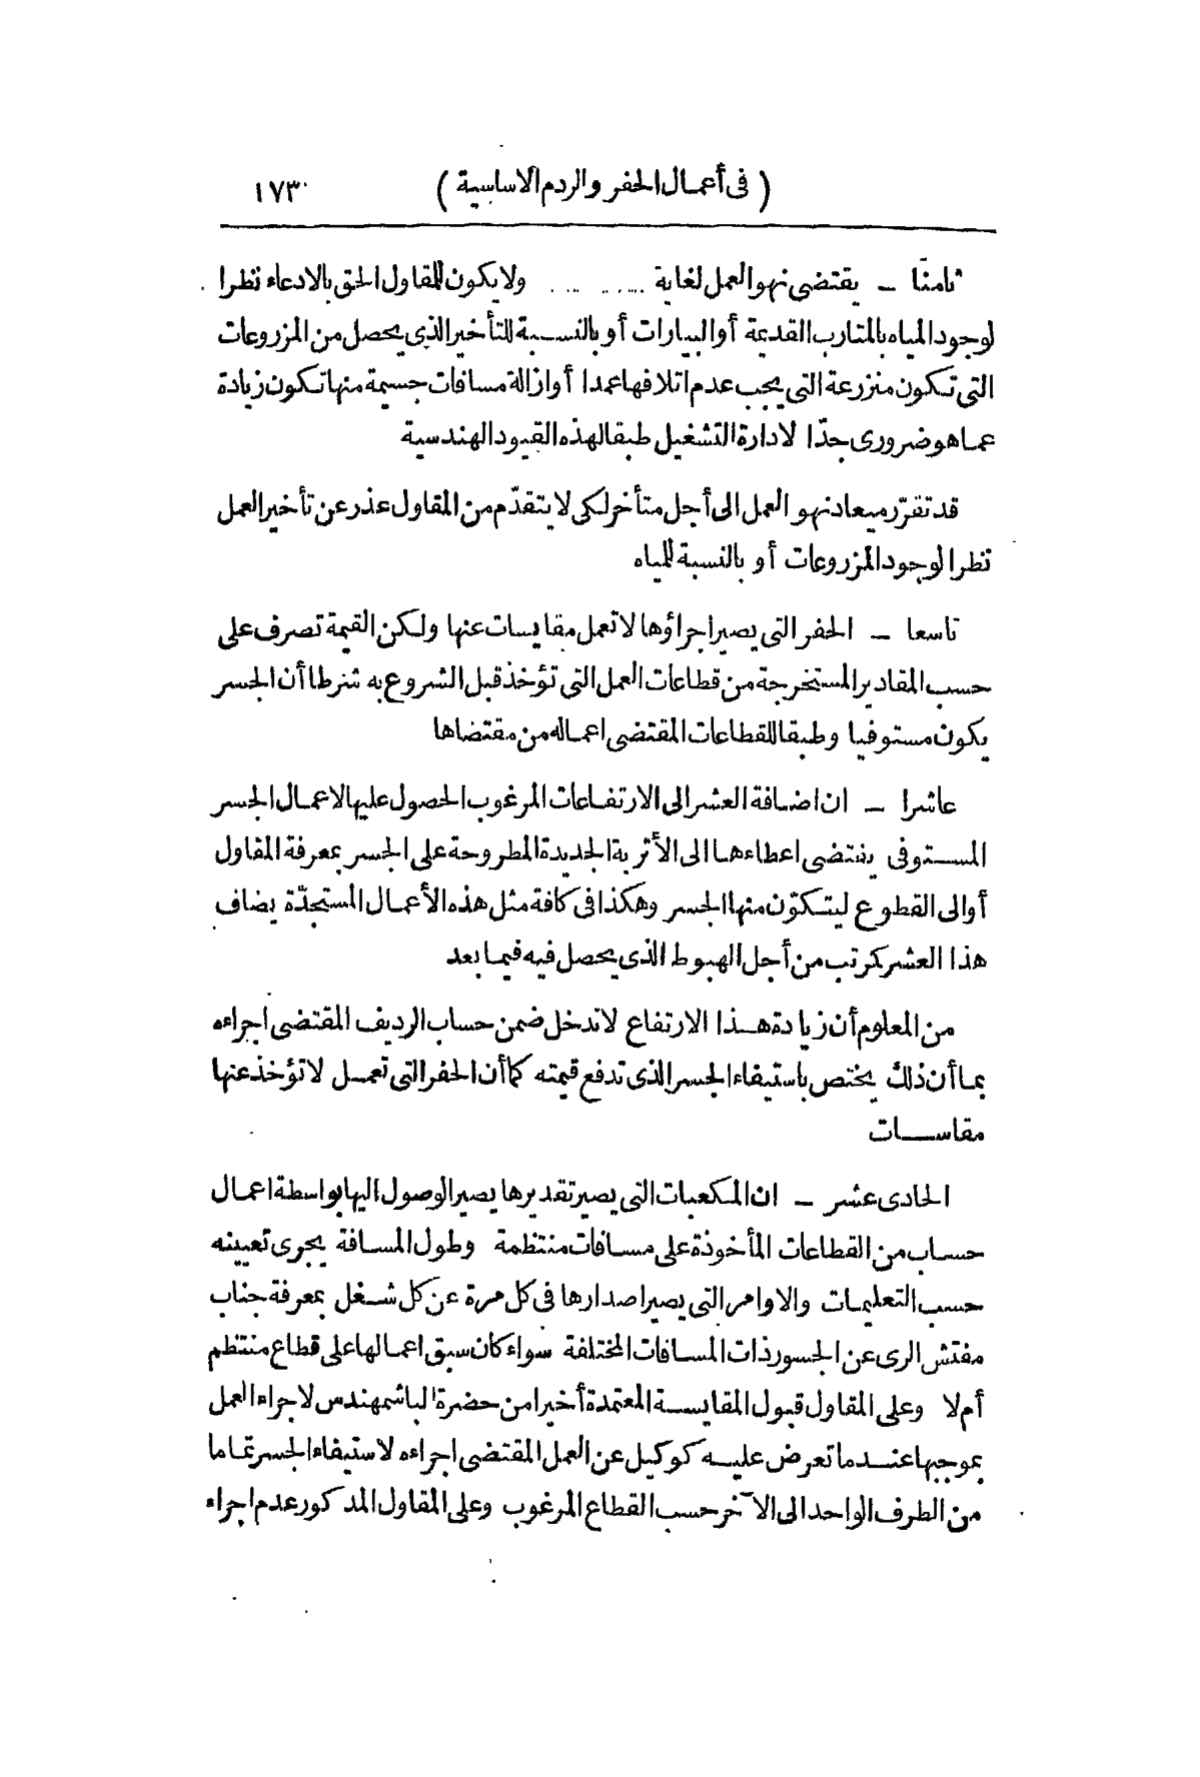 (فى أعمال الحفر والردم الاساسية) ١٧٣
ثامنًا – يقتضى نهو العمل لغاية ........ ولا يكون للمقاول الحق بالادعاء نظرا
لوجود المياه بالمتارب القديمة أو البيارات أو بالنسبة للتأخير الذى يحصل من المزروعات
التى تكون منزرعة التى يجب عدم اتلافها عمدا أو ازالة مسافات جسيمة منها تكون زيادة
عما هو ضرورى جدّا لادارة التشغيل طبقا لهذه القيود الهندسية
قد تقرّر ميعاد نهو العمل الى أجل متأخر لكى لا يتقدّم من المقاول عذر عن تأخير العمل
نظرا لوجود المزروعات أو بالنسبة للمياه
تاسعا – الحفر التى يصير اجراؤها لا تعمل مقايسات عنها ولكن القيمة تصرف على
حسب المقادير المستخرجة من قطاعات العمل التى تؤخذ قبل الشروع به شرطا أن الجسر
يكون مستوفيا وطبقا للقطاعات المقتضى اعماله من مقتضاها
عاشرا – ان اضافة العشر الى الارتفاعات المرغوب الحصول عليها لاعمال الجسر
المستوفى يقتضى اعطاءها الى الأتربة الجديدة المطروحة على الجسر بمعرفة المقاول
أو الى القطوع ليتكوّن منها الجسر وهكذا فى كافة مثل هذه الأعمال المستجدّة يضاف
هذا العشر كرتب من أجل الهبوط الذى يحصل فيه فيما بعد
من المعلوم أن زيادة هذا الارتفاع لا تدخل ضمن حساب الرديف المقتضى اجراءه
بما أن ذلك يختص باستيفاء الجسر الذى تدفع قيمته كما أن الحفر التى تعمل لا تؤخذ عنها
مقاسات
الحادى عشر – ان المكعبات التى يصير تقديرها يصير الوصول اليها بواسطة اعمال
حساب من القطاعات المأخوذة على مسافات منتظمة وطول المسافة يجرى تعيينه
حسب التعليمات والاوامر التى يصير اصدارها فى كل مرة عن كل شغل بمعرفة جناب
مفتش الرى عن الجسور ذات المسافات المختلفة سواء كان سبق اعمالها على قطاع منتظم
أم لا وعلى المقاول قبول المقايسة المعتمدة أخيرا من حضرة الباشمهندس لاجراء العمل
بموجبها عندما تعرض عليه كوكيل عن العمل المقتضى اجراءه لاستيفاء الجسر تماما
من الطرف الواحد الى الآخر حسب القطاع المرغوب وعلى المقاول المذكور عدم اجراء